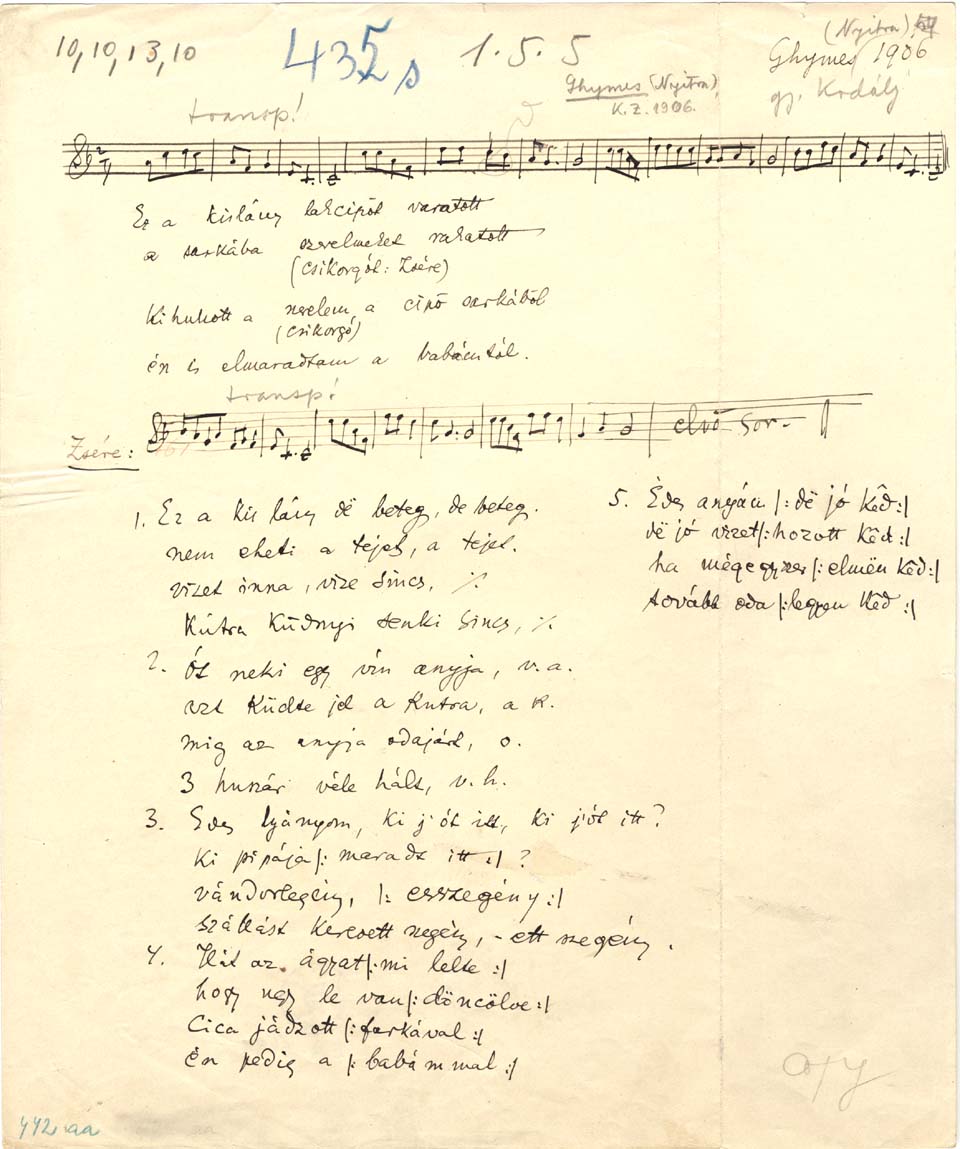 10, 10, 13, 10
435 s
1. 5. 5
(Nyitra)
Ghymes 1906
gy. Kodály
Ghymes (Nyitra)
K. Z. 1906.
transp!
Ez a kislány lakcipőt varatott
a sarkába szerelmeket rakatott
(csikorgót: Zsére)
Kihullott a szerelem a cipő sarkából
(csikorgó)
én is elmaradtam a babámtól.
transp!
Zsére:
első sor
1. Ez a kis lány dë beteg, de beteg.
nem eheti a téjet, a téjet.
vizet inna, vize sincs, ·/·
Kútra Küdnyi senki sincs, ·/·
2. Ót neki egy vín anyja, v. a.
azt Küdte jel a Kutra, a K.
mig az anyja odajárt, o.
3 huszár véle hált, v. h.
3. Edes lyányom, ki j'ót itt, ki j'ót itt?
Ki pipája |: maradt itt :| ?
vándorlegény, |: esszegény :|
szállást keresett szegény, - ett szegény.
4. Hát az ágyat |: mi lelte :|
hogy ugy le van |: döncölve :|
Cica jádzott |: farkával :|
Én pedig a |: babámmal :|
5. Édes anyám |: dë jó Kêd :|
dë jó vizet |: hozott Kêd :|
ha mégegyszer |: elmën Kêd :|
tovább oda |: legyen Kêd :|
442 aa